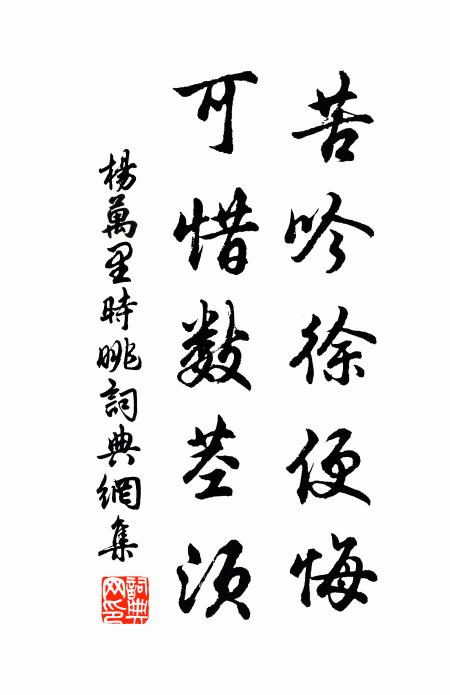 苦吟徐便悔
可惜數茎須
楊萬里時晀詞典網集
詞典网印